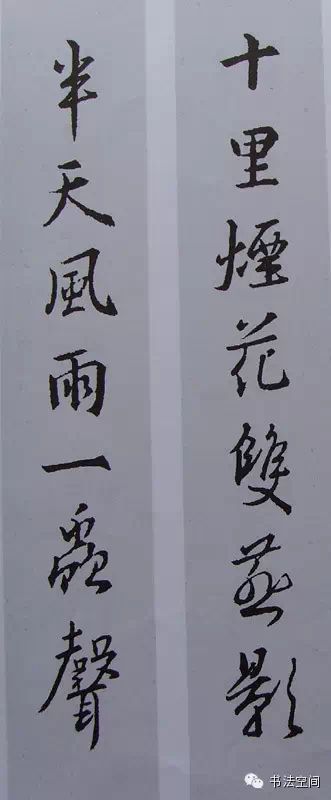 十里煙花雙燕影
半天風雨一聲
书法空间